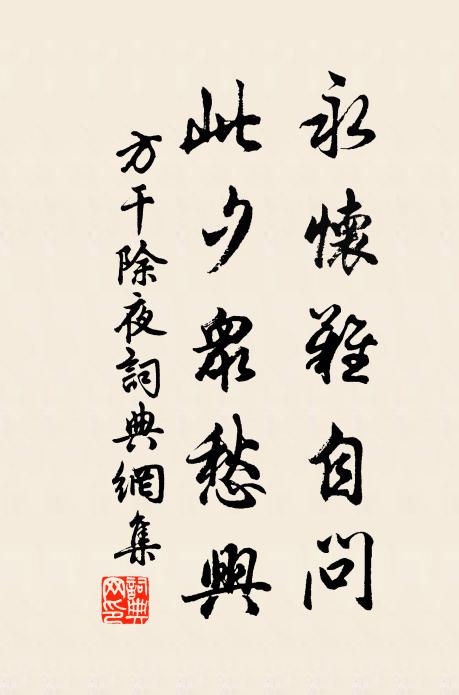 永懷難自問
此夕衆愁興
方干除夜詞典網集
詞典网印